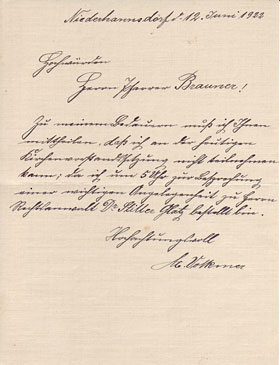 Niederhannsdorf d. 12. Juni 1922
Hochwürden
Herrn Pfarrer Brauner!
Zu meinem Bedauern muß ich Ihnen
mittheilen, daß ich an der heutigen
Kirchenvorstandssitzung nicht teilnehmen
kann, da ich um 5 Uhr zur Besprechung
einer wichtigen Angelegenheit zu Herrn
Rechtsanwalt Dr Glatz bestellt bin.
Hochachtungsvoll
A. Volkmer